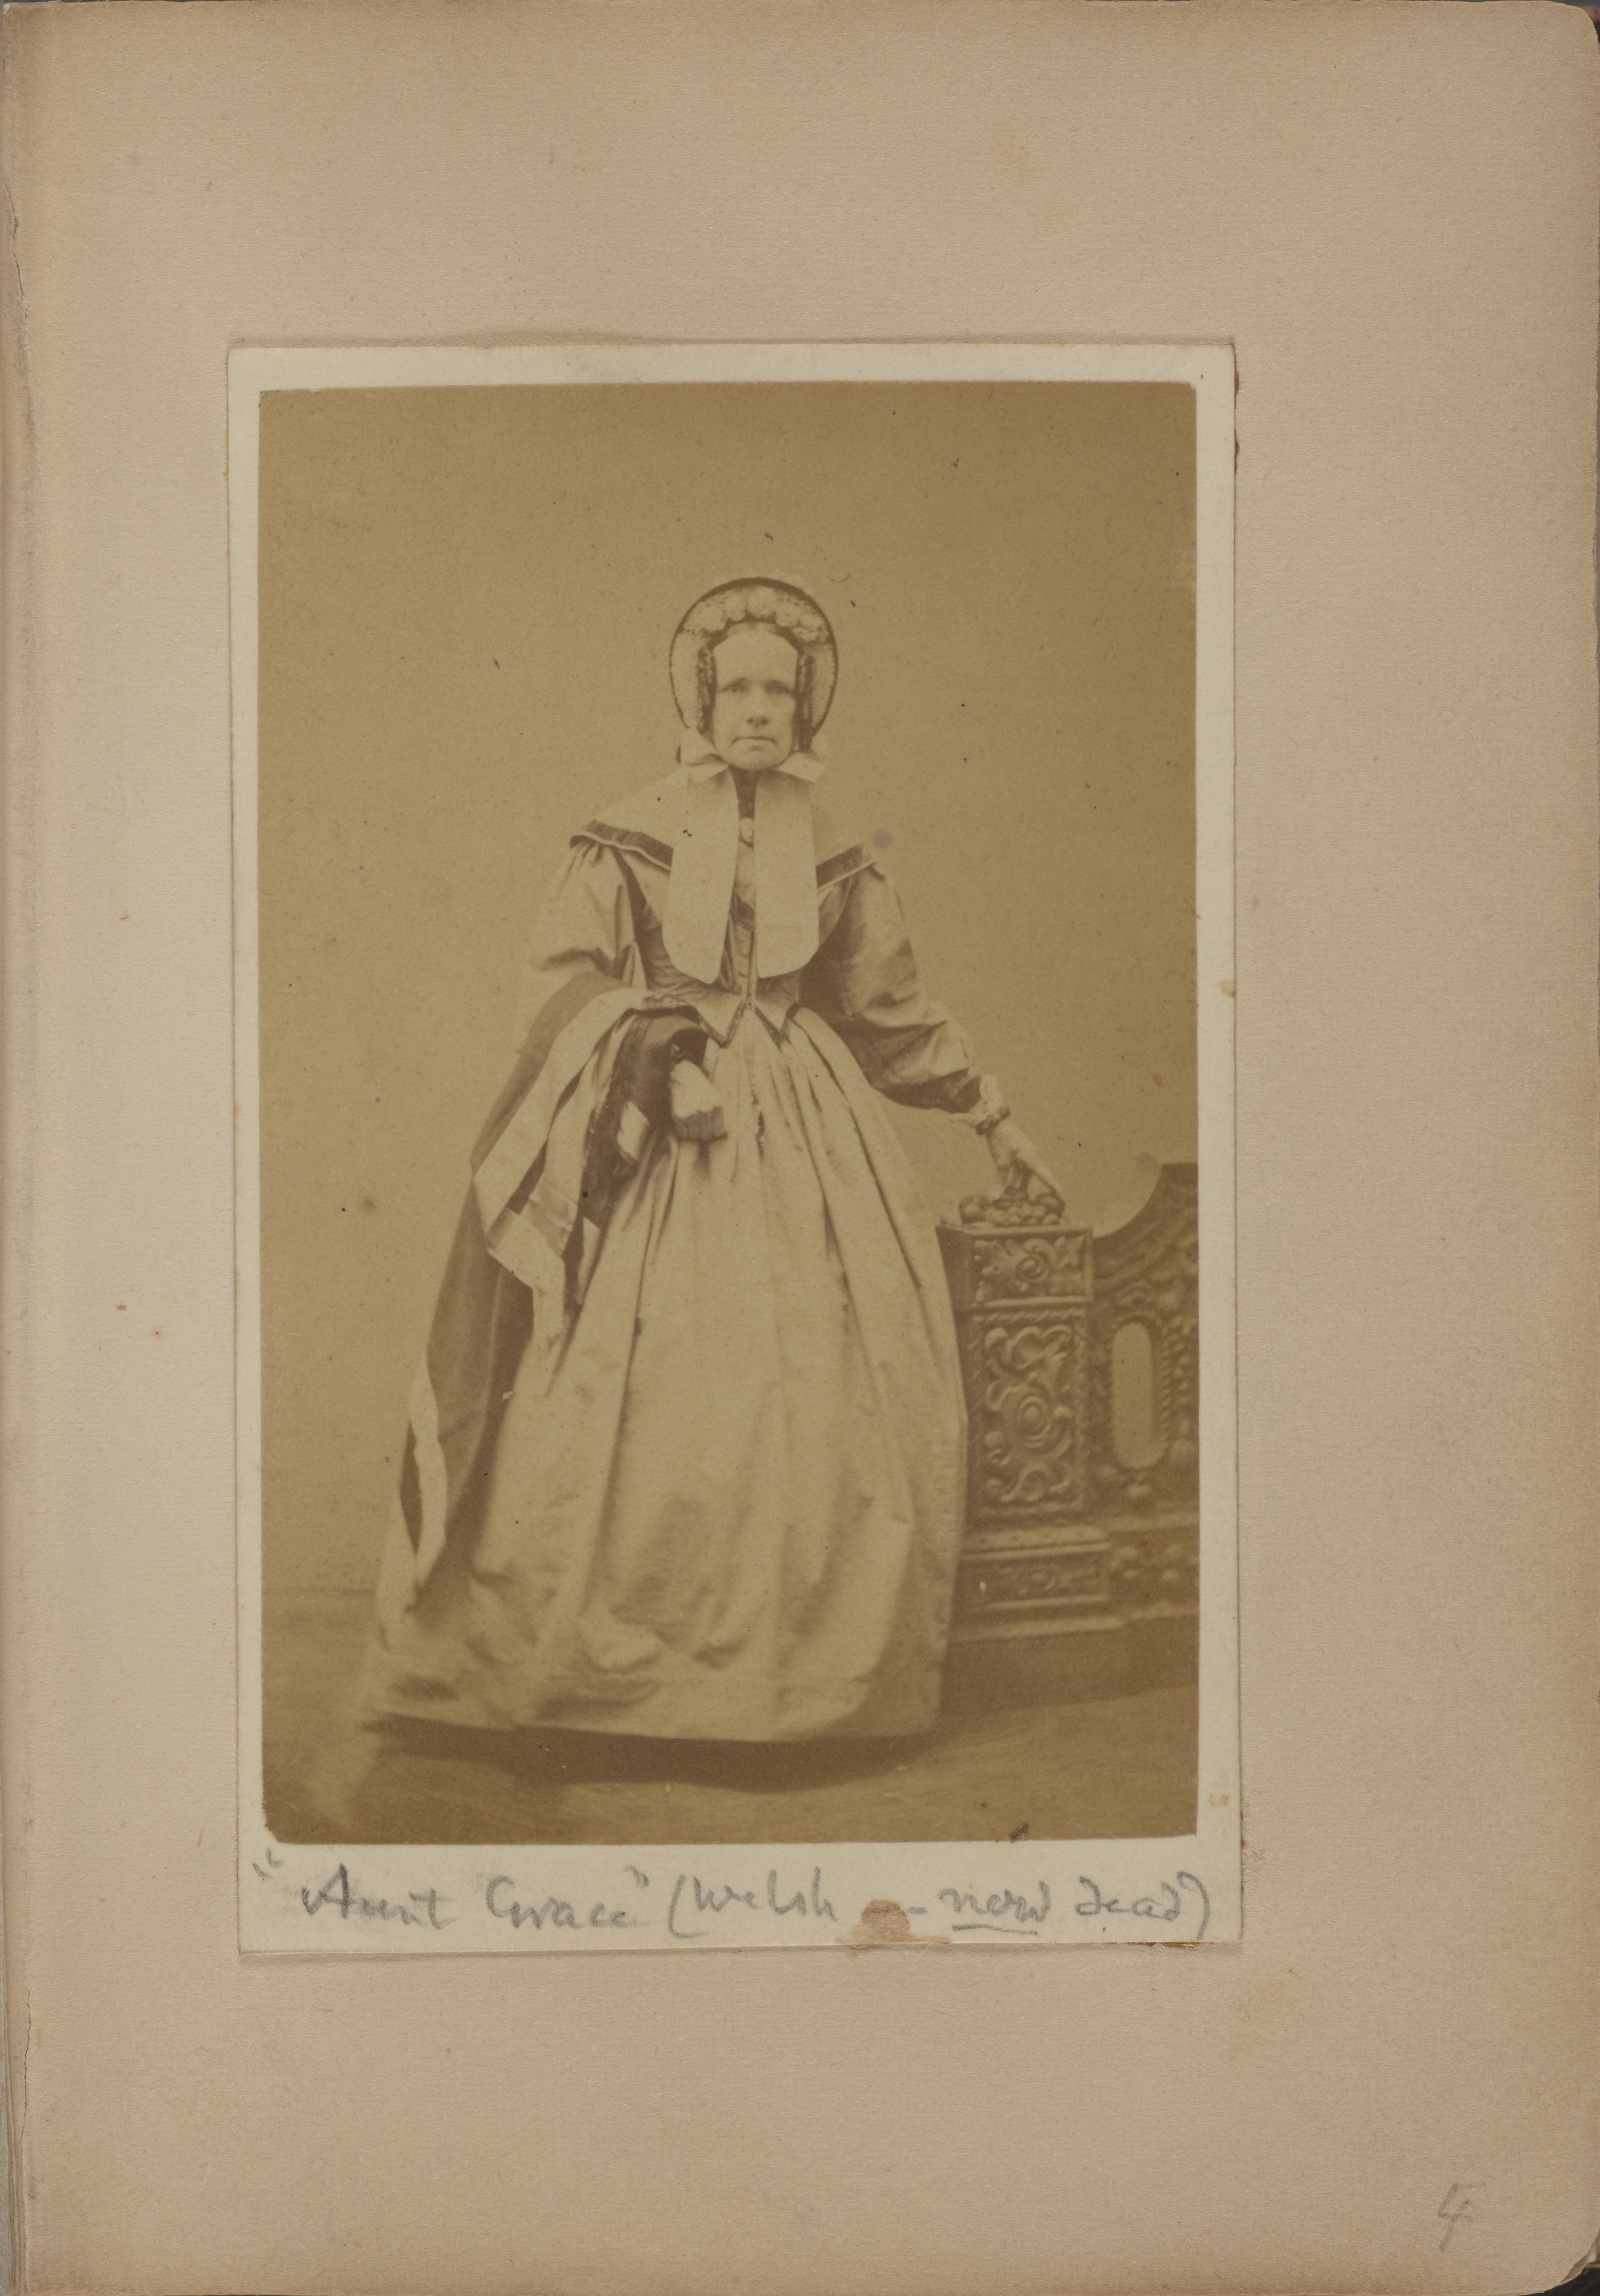 "Aunt Grace" (Welsh — now dead)